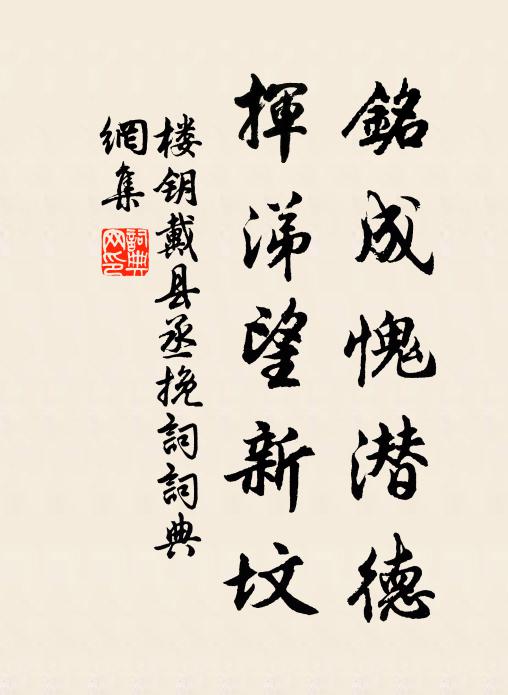 銘成愧潜德
揮涕望新坟
楼钥戴县丞挽詞詞典
網集
詞典
网印